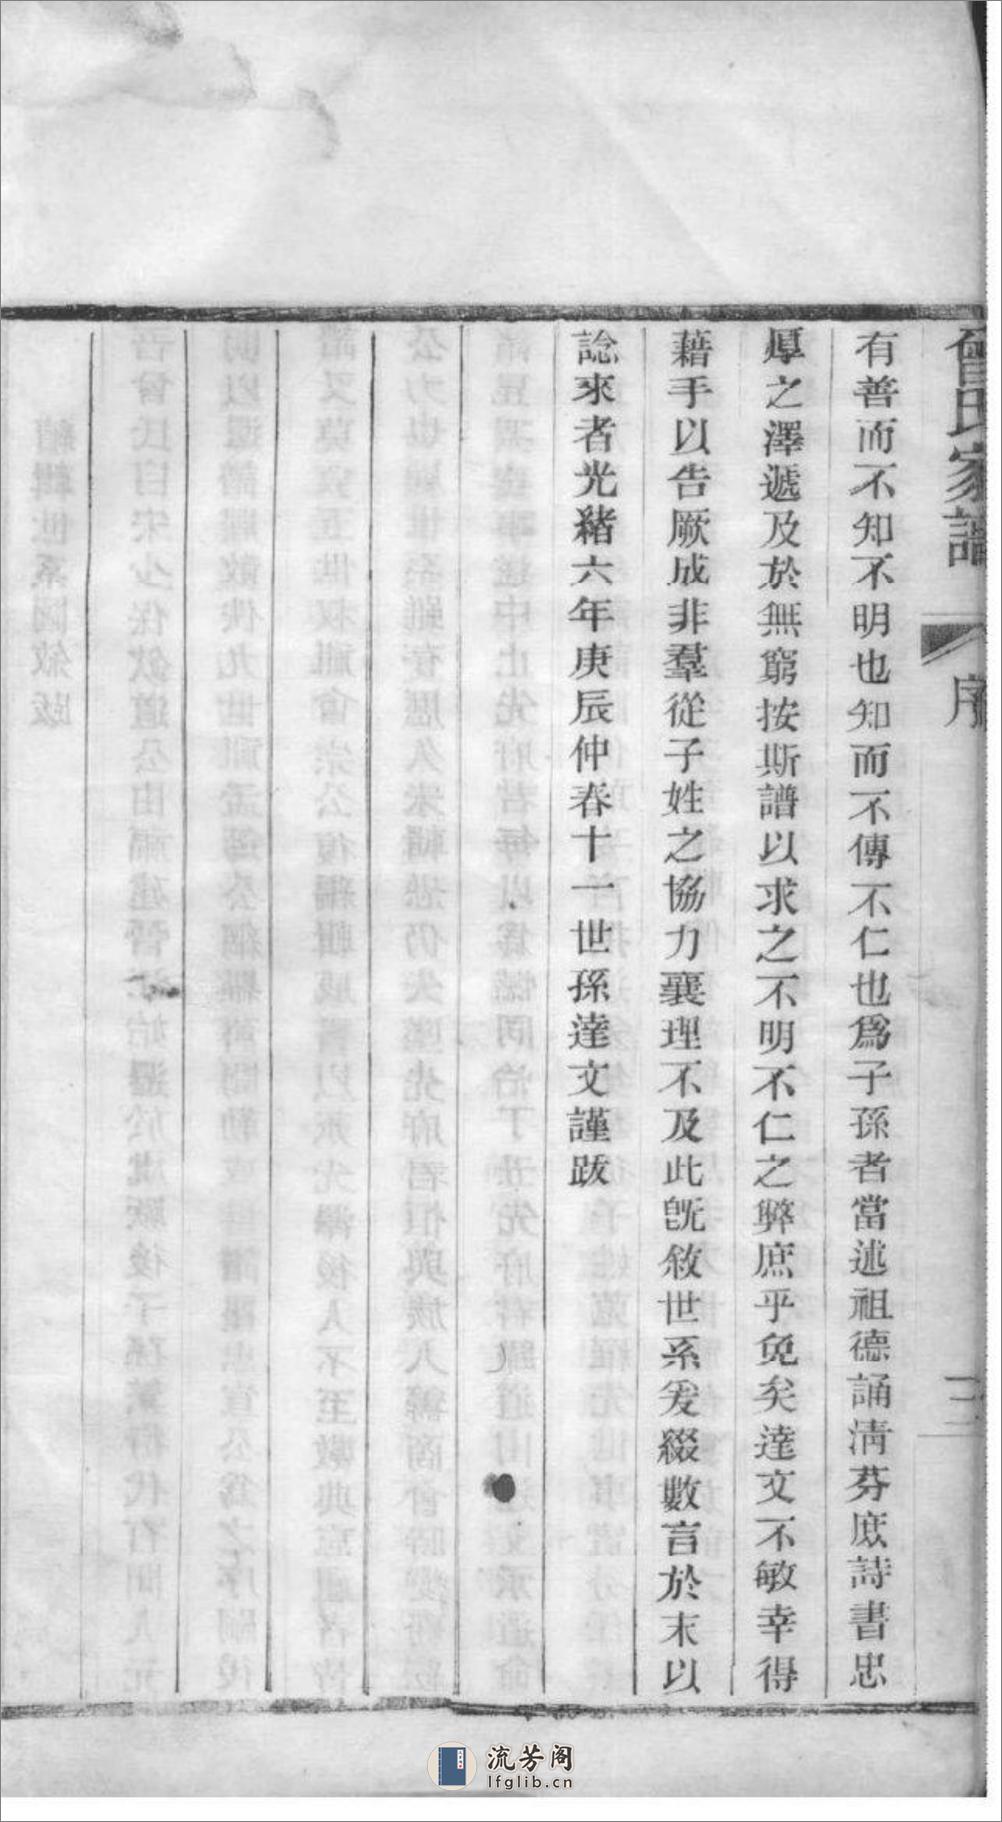 曾氏家譜 序 三
有善而不知不明也知而不傳不仁也爲子孫者當述祖德誦淸芬庶詩書忠
厚之澤遞及於無窮按斯譜以求之不明不仁之弊庶乎免矣達文不敏幸得
藉手以告厥成非羣從子姓之協力襄理不及此旣敘世系爰綴數言於末以
諗來者光緒六年庚辰仲春十一世孫達文謹跋
流芳阁
lfglib.cn